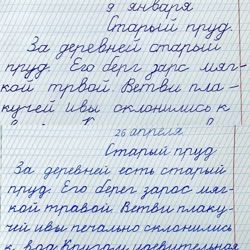 9 января
Старый пруд.
За деревней старый
пруд. Его берг зарс мяг-
кой трвой Ветви пла-
кучей ивы склонились к
26 апреля
Старый пруд
За деревней есть старый
пруд. Его берег зарос мяг-
кой травой Ветви плаку-
чей ивы печально склонились
к вод Кругом удевительная